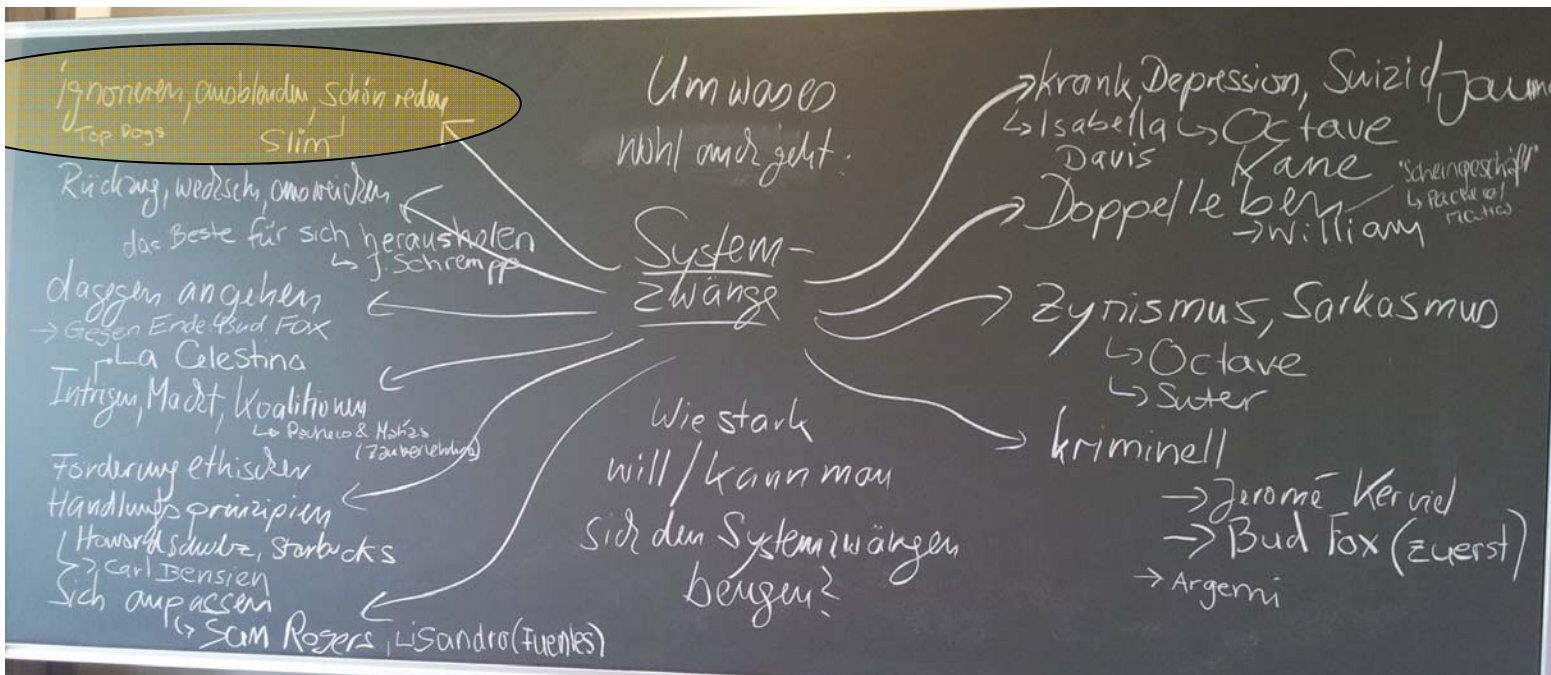 ignorieren, ausblenden, schön reden
Top Dogs
Slim
Rückzug, wechseln, ausweichen
das Beste für sich herausholen
↳ J. Schrempp
dagegen angehen
→ Gegen Ende: Bud Fox
La Celestina
Intrigen, Macht, Koalitionen
↳ Pacheco & Matías
(Zauberlehrling)
Förderung ethischer
Handlungsprinzipien
Howard Schulz, Starbucks
↳ Carl
Sich anpassen
↳ Sam Rogers, Lisandro (Fuentes)
Um was es
wohl auch geht:
System-
zwänge
Wie stark
will / kann man
sich den Systemzwängen
beugen?
krank, Depression, Suizid
↳ Isabella ↳ Octave
Davis Kane
"Scheingeschäft"
Doppelleben
→ William
Zynismus, Sarkasmus
↳ Octave
↳ Suter
kriminell
→ Jeromé Kerviel
→ Bud Fox (zuerst)
→ Argemi